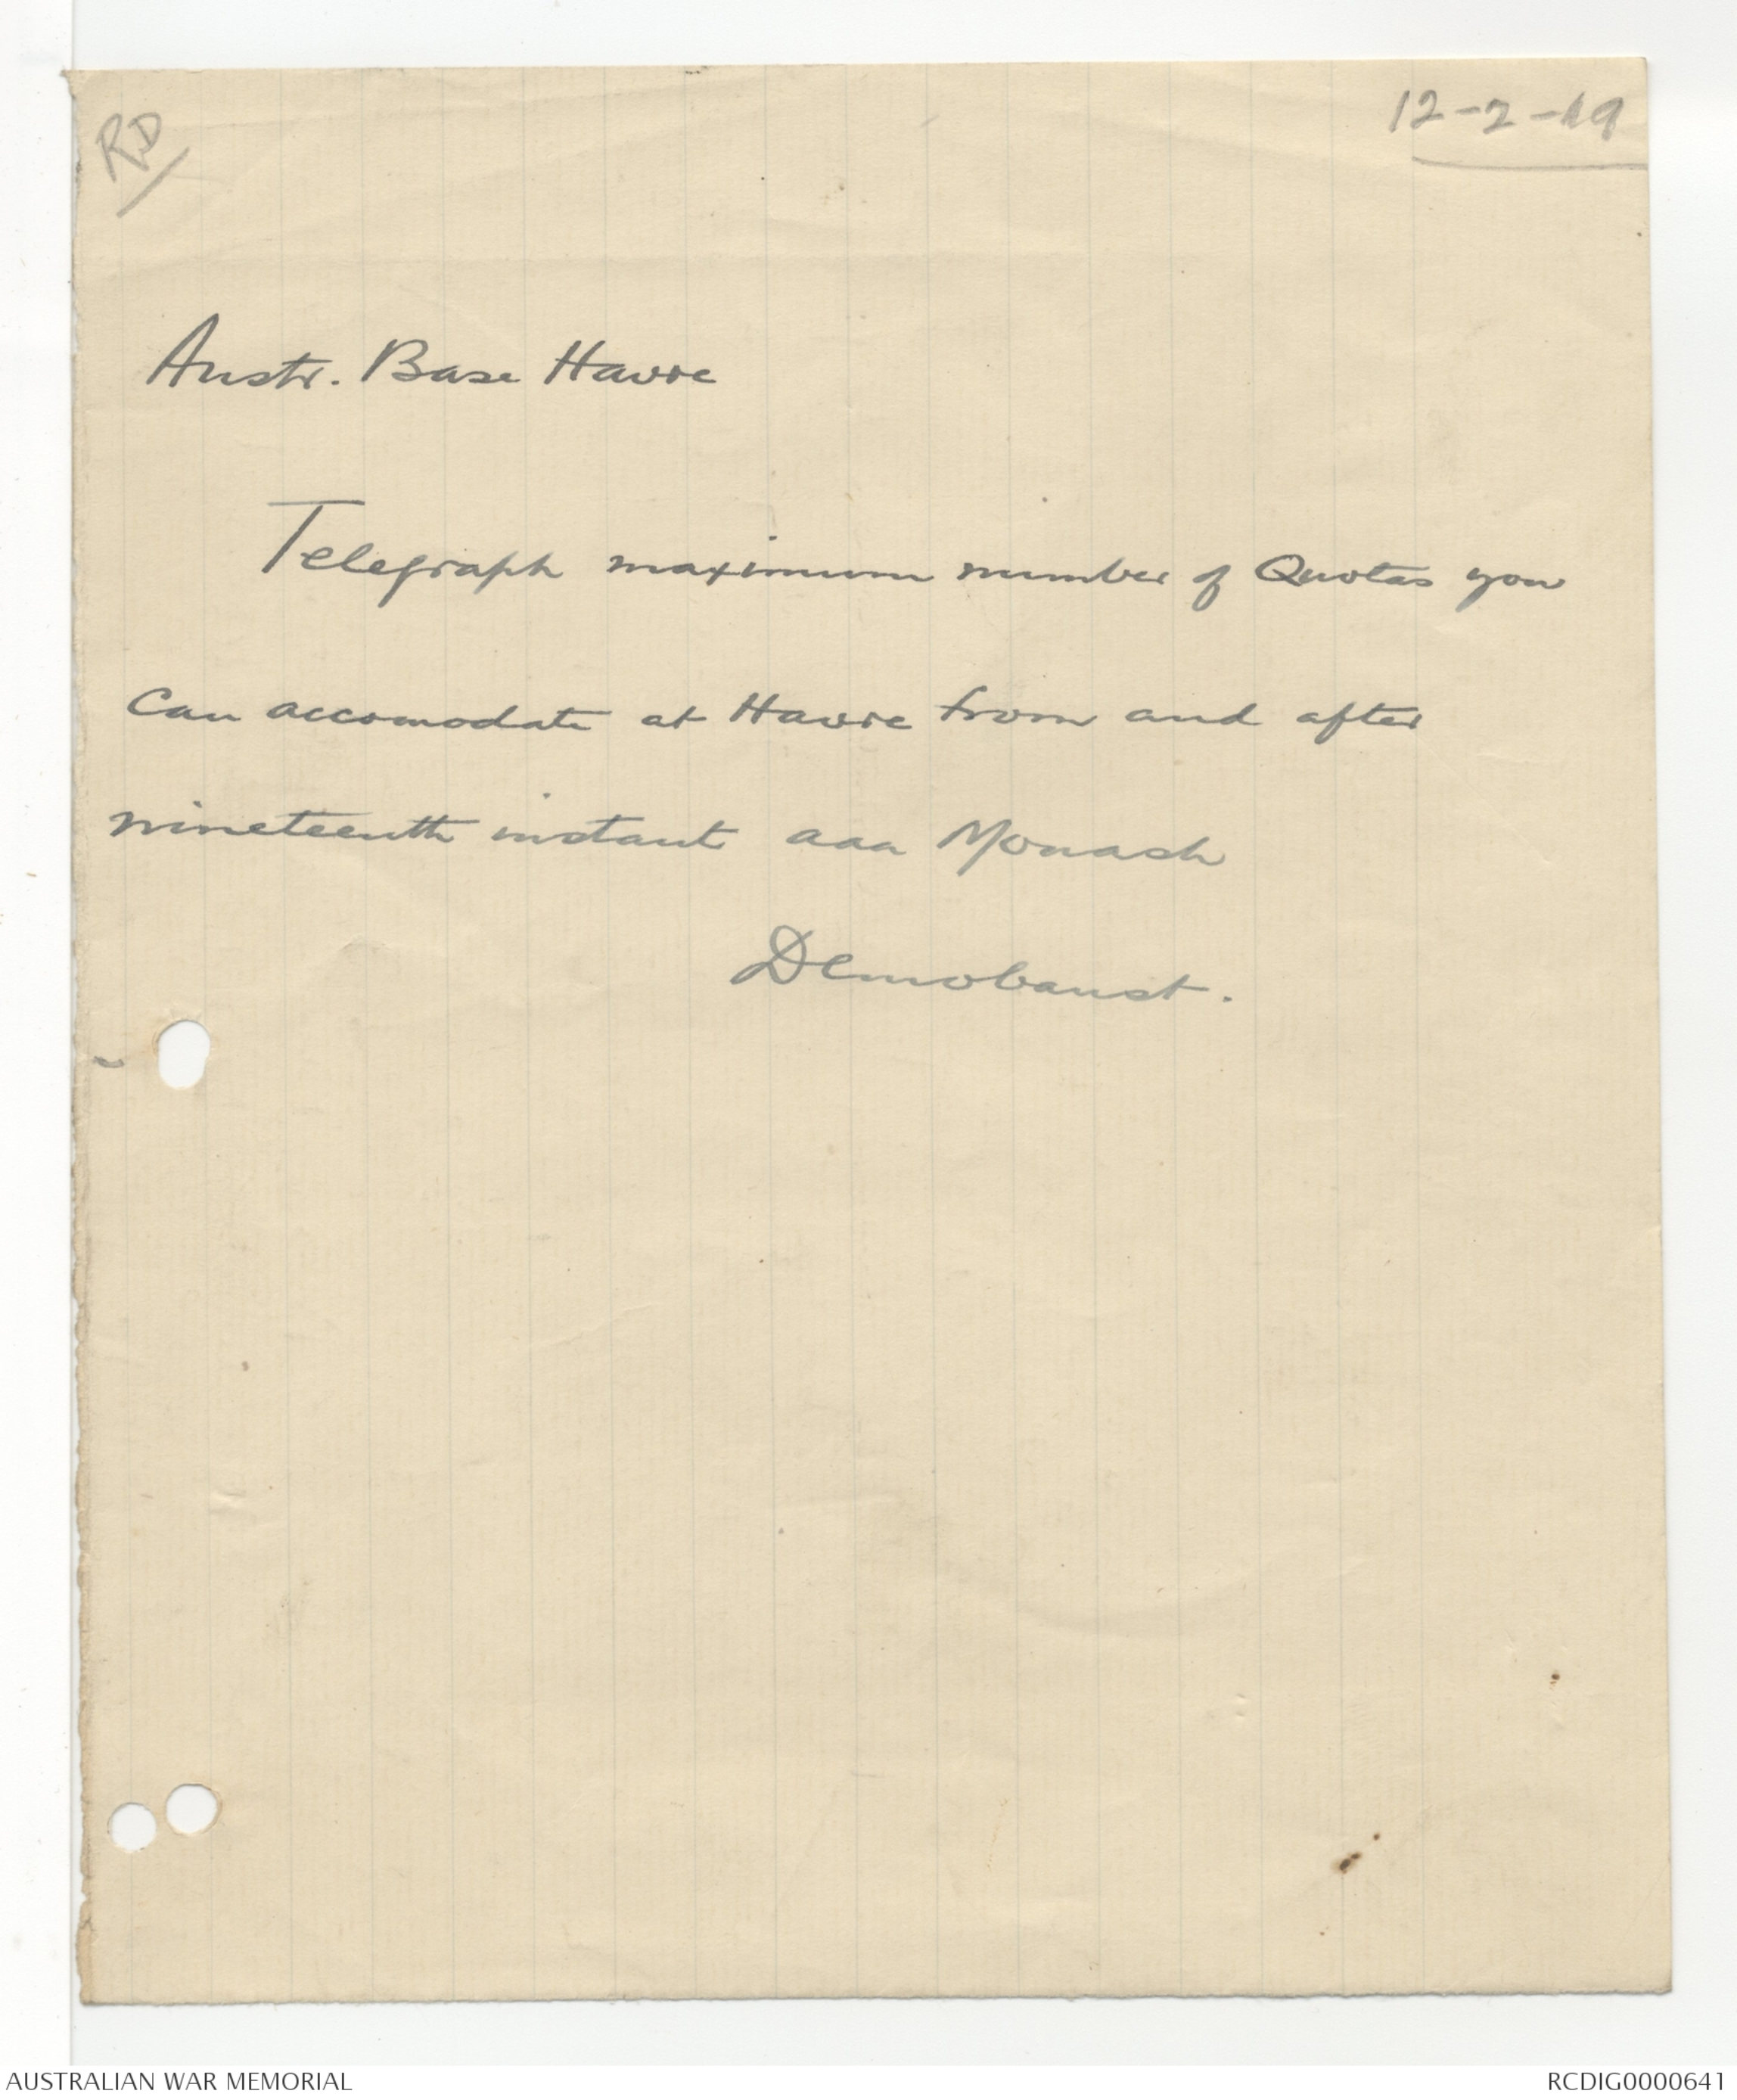 RD
12-2-19
Austr. Base Havre
Telegraph maximum number of Quotas you
can accomodate at Havre from and after
nineteenth instant aaa Monash
Demobaust.
AUSTRALIAN WAR MEMORIAL
RCDIG0000641